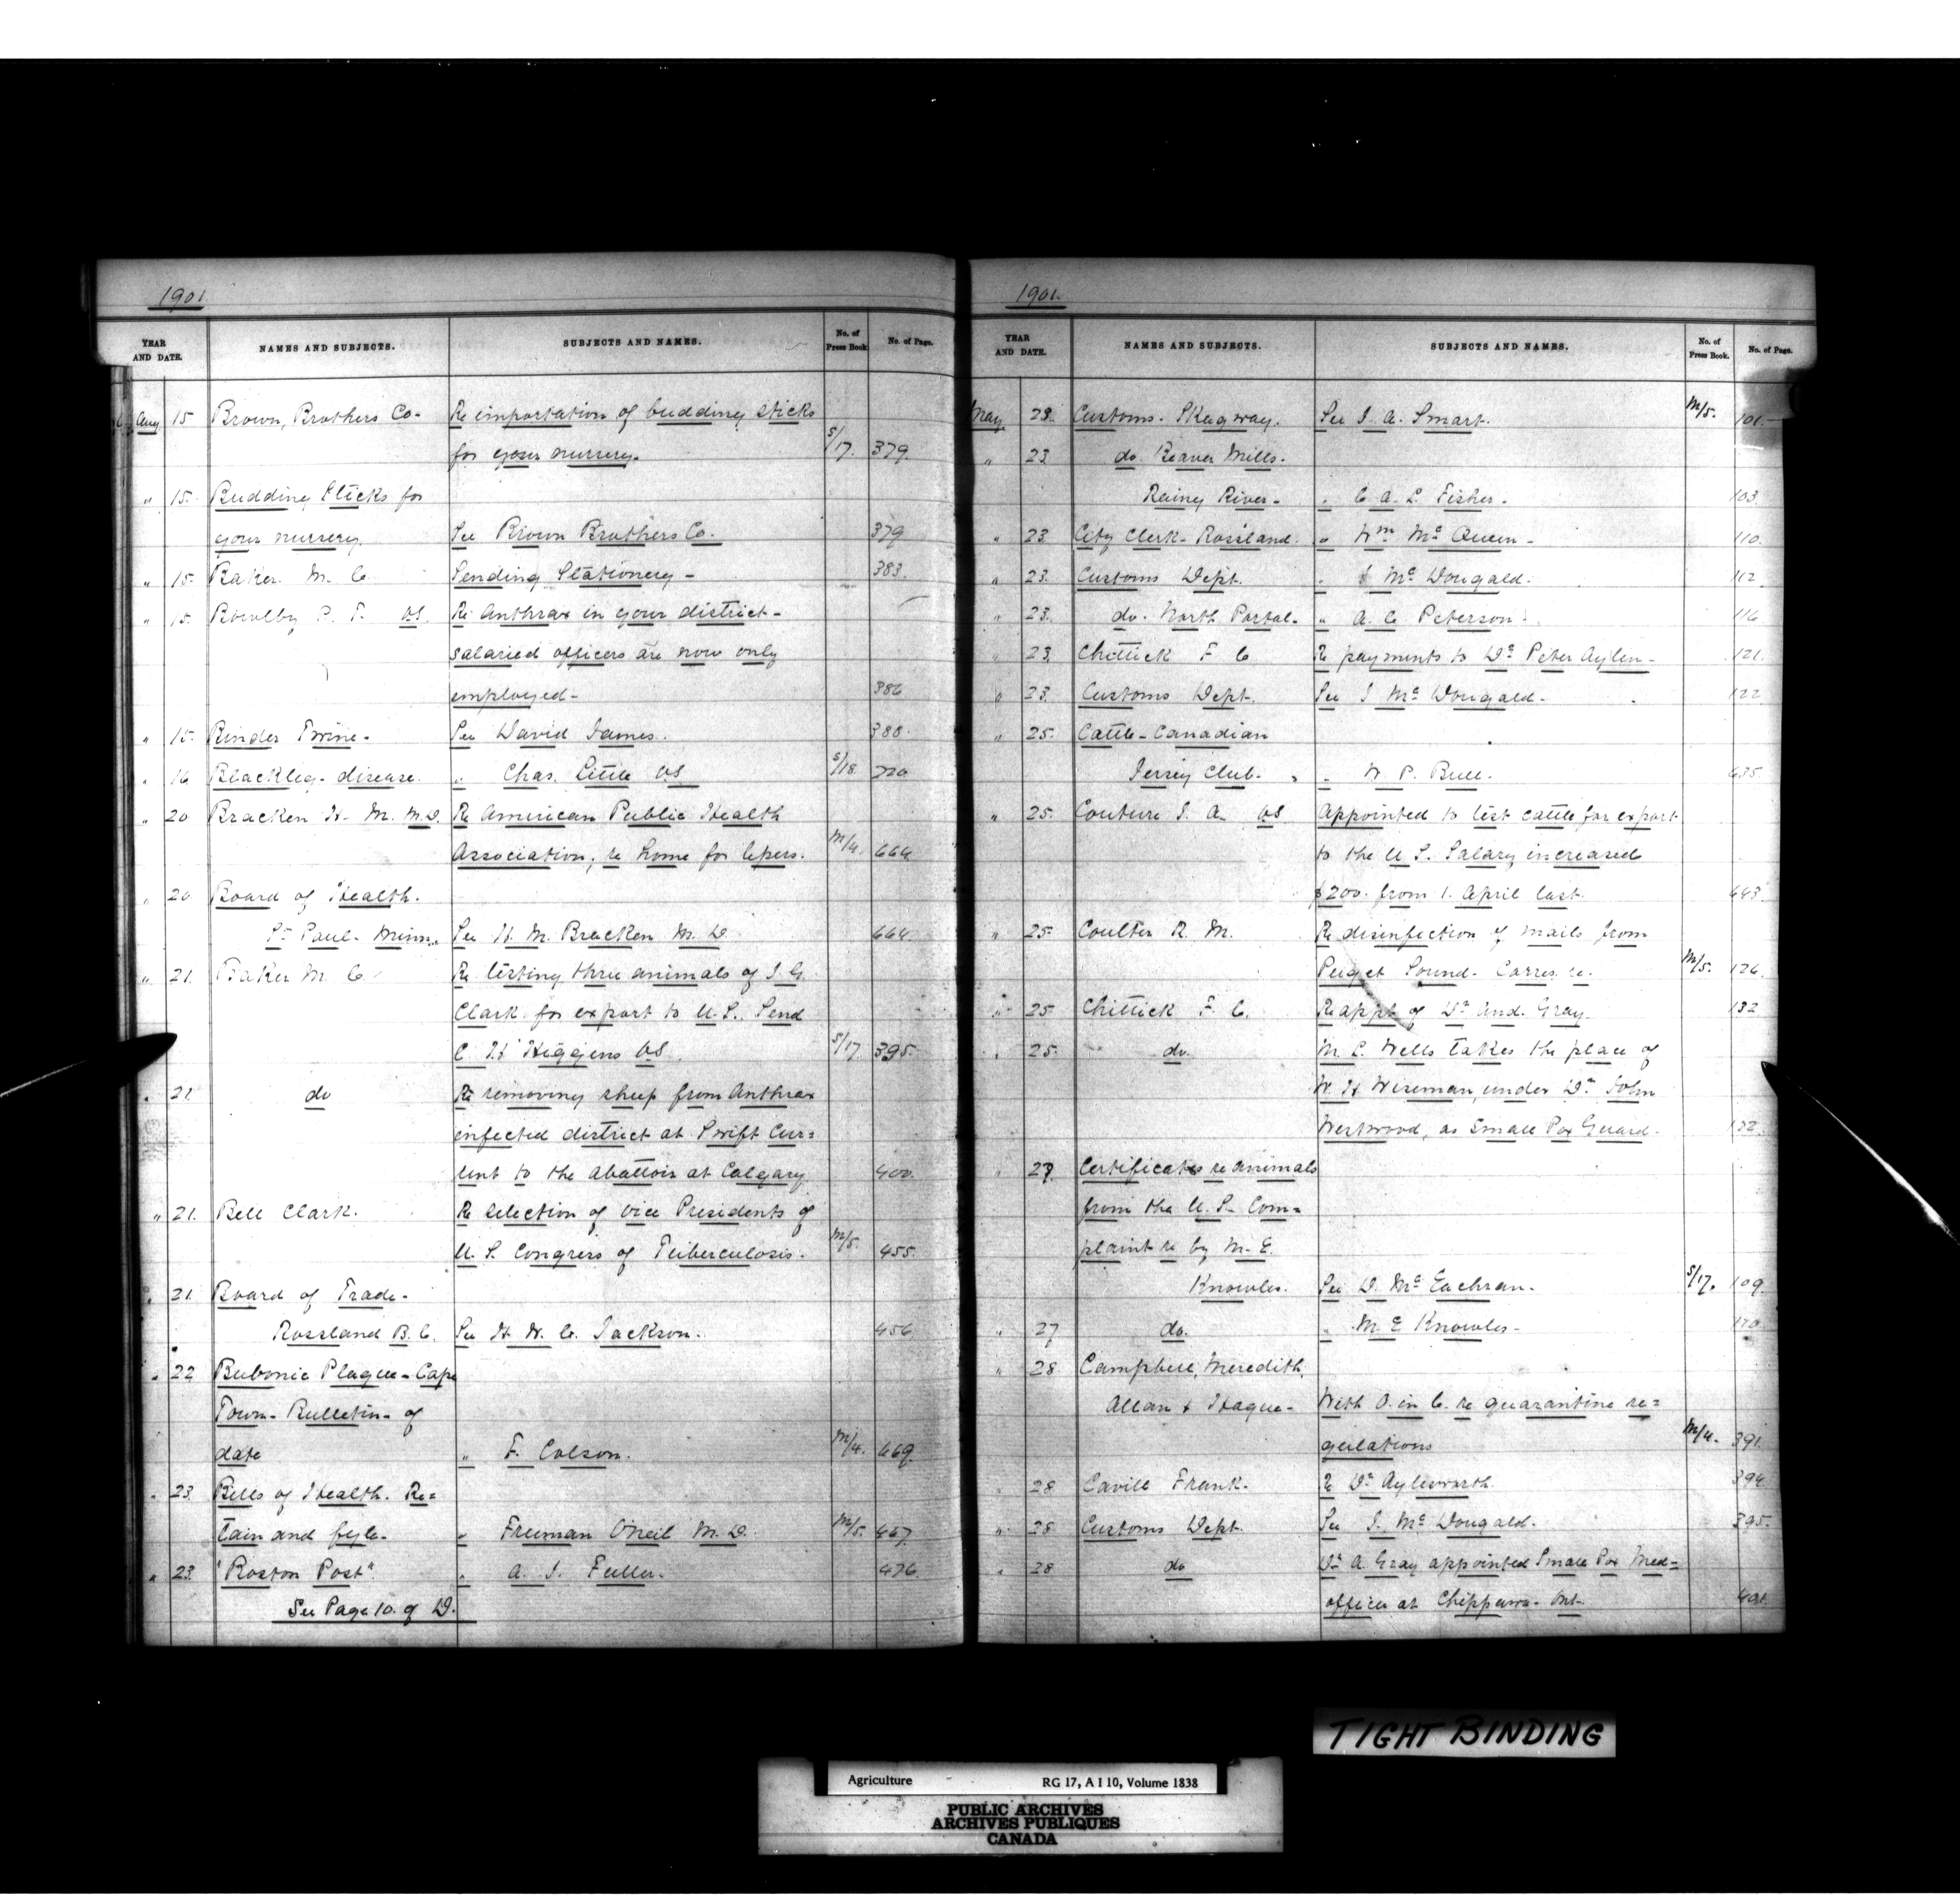 1901.
YEAR AND DATE. NAMES AND SUBJECTS. SUBJECTS AND NAMES. No. of Press Book. No. of Page.
Aug 15 Brown, Brothers Co- Re importation of budding sticks
for your nursery. S/17. 379.
" 15. Budding Sticks for
your nursery. See Brown Brothers Co. 379
" 15. Baker. M. C. Sending Stationery - 383.
" 15. Bowlby P. T. VS. Re Anthrax in your district -
salaried officers are now only
employed - 386
" 15. Binder Twine - See David James. 388.
" 16 Blackleg - disease. " Chas. Little VS S/18 220
" 20 Bracken H. M. M.D. Re American Public Health
Association, re home for lepers. M/4. 664
" 20 Board of Health.
St Paul - Minn. See H. M. Bracken M. D. 664
" 21. Baker M. C. Re testing three animals of J. G.
Clark for export to U.S. Send
C. H. Higgins VS S/17 395.
" 21 do Re removing sheep from Anthrax
infected district at Swift Cur=
rent to the abattoir at Calgary 400.
" 21. Bell Clark. Re selection of Vice Presidents of
U. S. Congress of Tuberculosis. M/5. 455.
" 21. Board of Trade -
Rossland B. C. See H. W. C. Jackson. 456
" 22 Bubonic Plague - Cape
Town - Bulletin - of
date " F. Colson. M/4. 669.
" 23. Bills of Health. Re=
tain and fyle - " Freeman O'Neil M. D. M/5. 467.
" 23. "Boston Post" " A. J. Fuller. 476
See Page 10. of D.
1901.
YEAR AND DATE. NAMES AND SUBJECTS. SUBJECTS AND NAMES. No. of Press Book. No. of Page.
May 23. Customs. Skagway. See J. A. Smart. M/5. 101.
" 23 do. Beaver Mills.
Rainy River - " C. A. L. Fisher - 103
" 23 City Clerk - Rossland. " Wm McQueen - 110.
" 23. Customs Dept. " J McDougald. 112.
" 23. do. North Portal. " A. C. Peterson. 116
" 23. Chittick F. C. Re payments to Dr Peter Aylen - 121.
" 23. Customs Dept. See J McDougald - 122
" 25. Cattle - Canadian
Jersey Club. " W. P. Bull. 635.
" 25. Couture J. A. VS Appointed to test cattle for export
to the U. S. Salary increased
$200. from 1. April last. 643.
" 25 Coulter R. M. Re disinfection of mails from
Puget Sound - Corres. re. M/5. 126.
" 25 Chittick F. C. Re appt of Dr And. Gray. 132
" 25. do. M. L. Wells takes the place of
W. H Wiseman, under Dr John
Westwood, as Small Pox Guard. 132.
" 27. Certificates re animals
from the U. S. Com=
plaint re by M. E.
Knowles. See D. McEachran. S/17. 109.
" 27 do. " M. E Knowles - 170
" 28 Campbell, Meredith,
Allan & Hague - With O. in C. re quarantine re=
gulations M/4. 391.
" 28 Cavill Frank. Re Dr Aylesworth. 394.
" 28 Customs Dept. See J. McDougald. 395.
" 28 do Dr A. Gray appointed Small Pox Med=
officer at Chippawa - Ont. 401.
TIGHT BINDING
Agriculture RG 17, A I 10, Volume 1838
PUBLIC ARCHIVES
ARCHIVES PUBLIQUES
CANADA